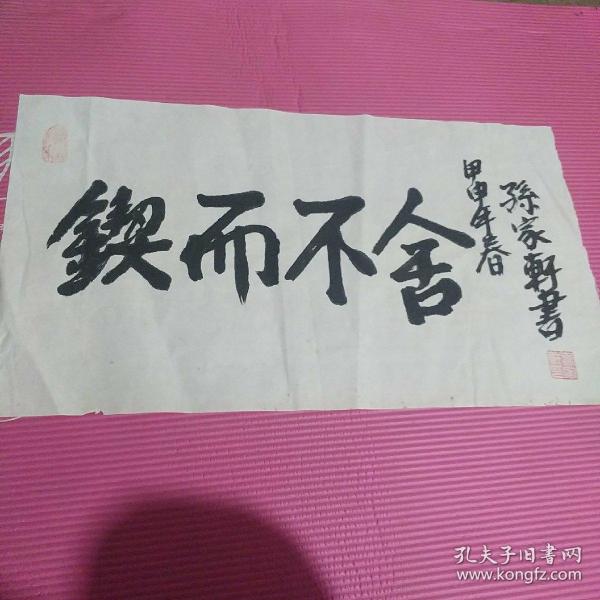 鍥而不舍
甲申年春
孫家軒書
孔夫子旧書网
www.kongfz.com